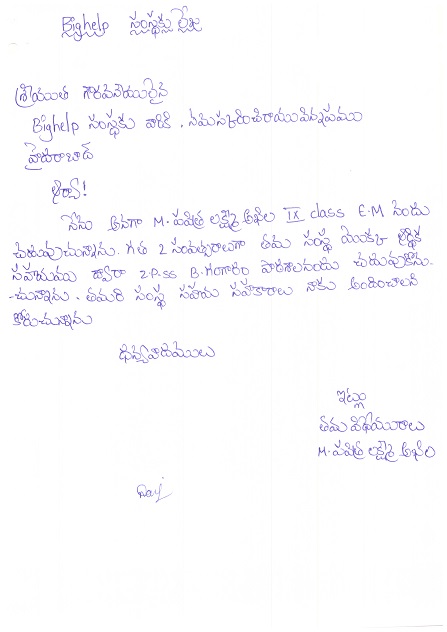 Bighelp సంస్థకు లేఖ
శ్రీయుత గౌరవనీయులైన
Bighelp సంస్థకు వారికి . నమస్కరించి వ్రాయు విన్నపము
హైదరాబాద్
సార్!
నేను అనగా M. పవిత్ర లక్ష్మి అఖిల IX class E.M నందు
చదువుచున్నాను. గత 2 సంవత్సరాలుగా తమ సంస్థ యొక్క ఆర్థిక
సహాయము ద్వారా Z.P.ss పాఠశాలనందు చదువుకొను-
-చున్నాను . తమరి సంస్థ సహాయ సహకారాలు నాకు అందించాలని
కోరుచున్నాను
ధన్యవాదములు
ఇట్లు
తమ విధేయురాలు
M. పవిత్ర లక్ష్మి అఖిల